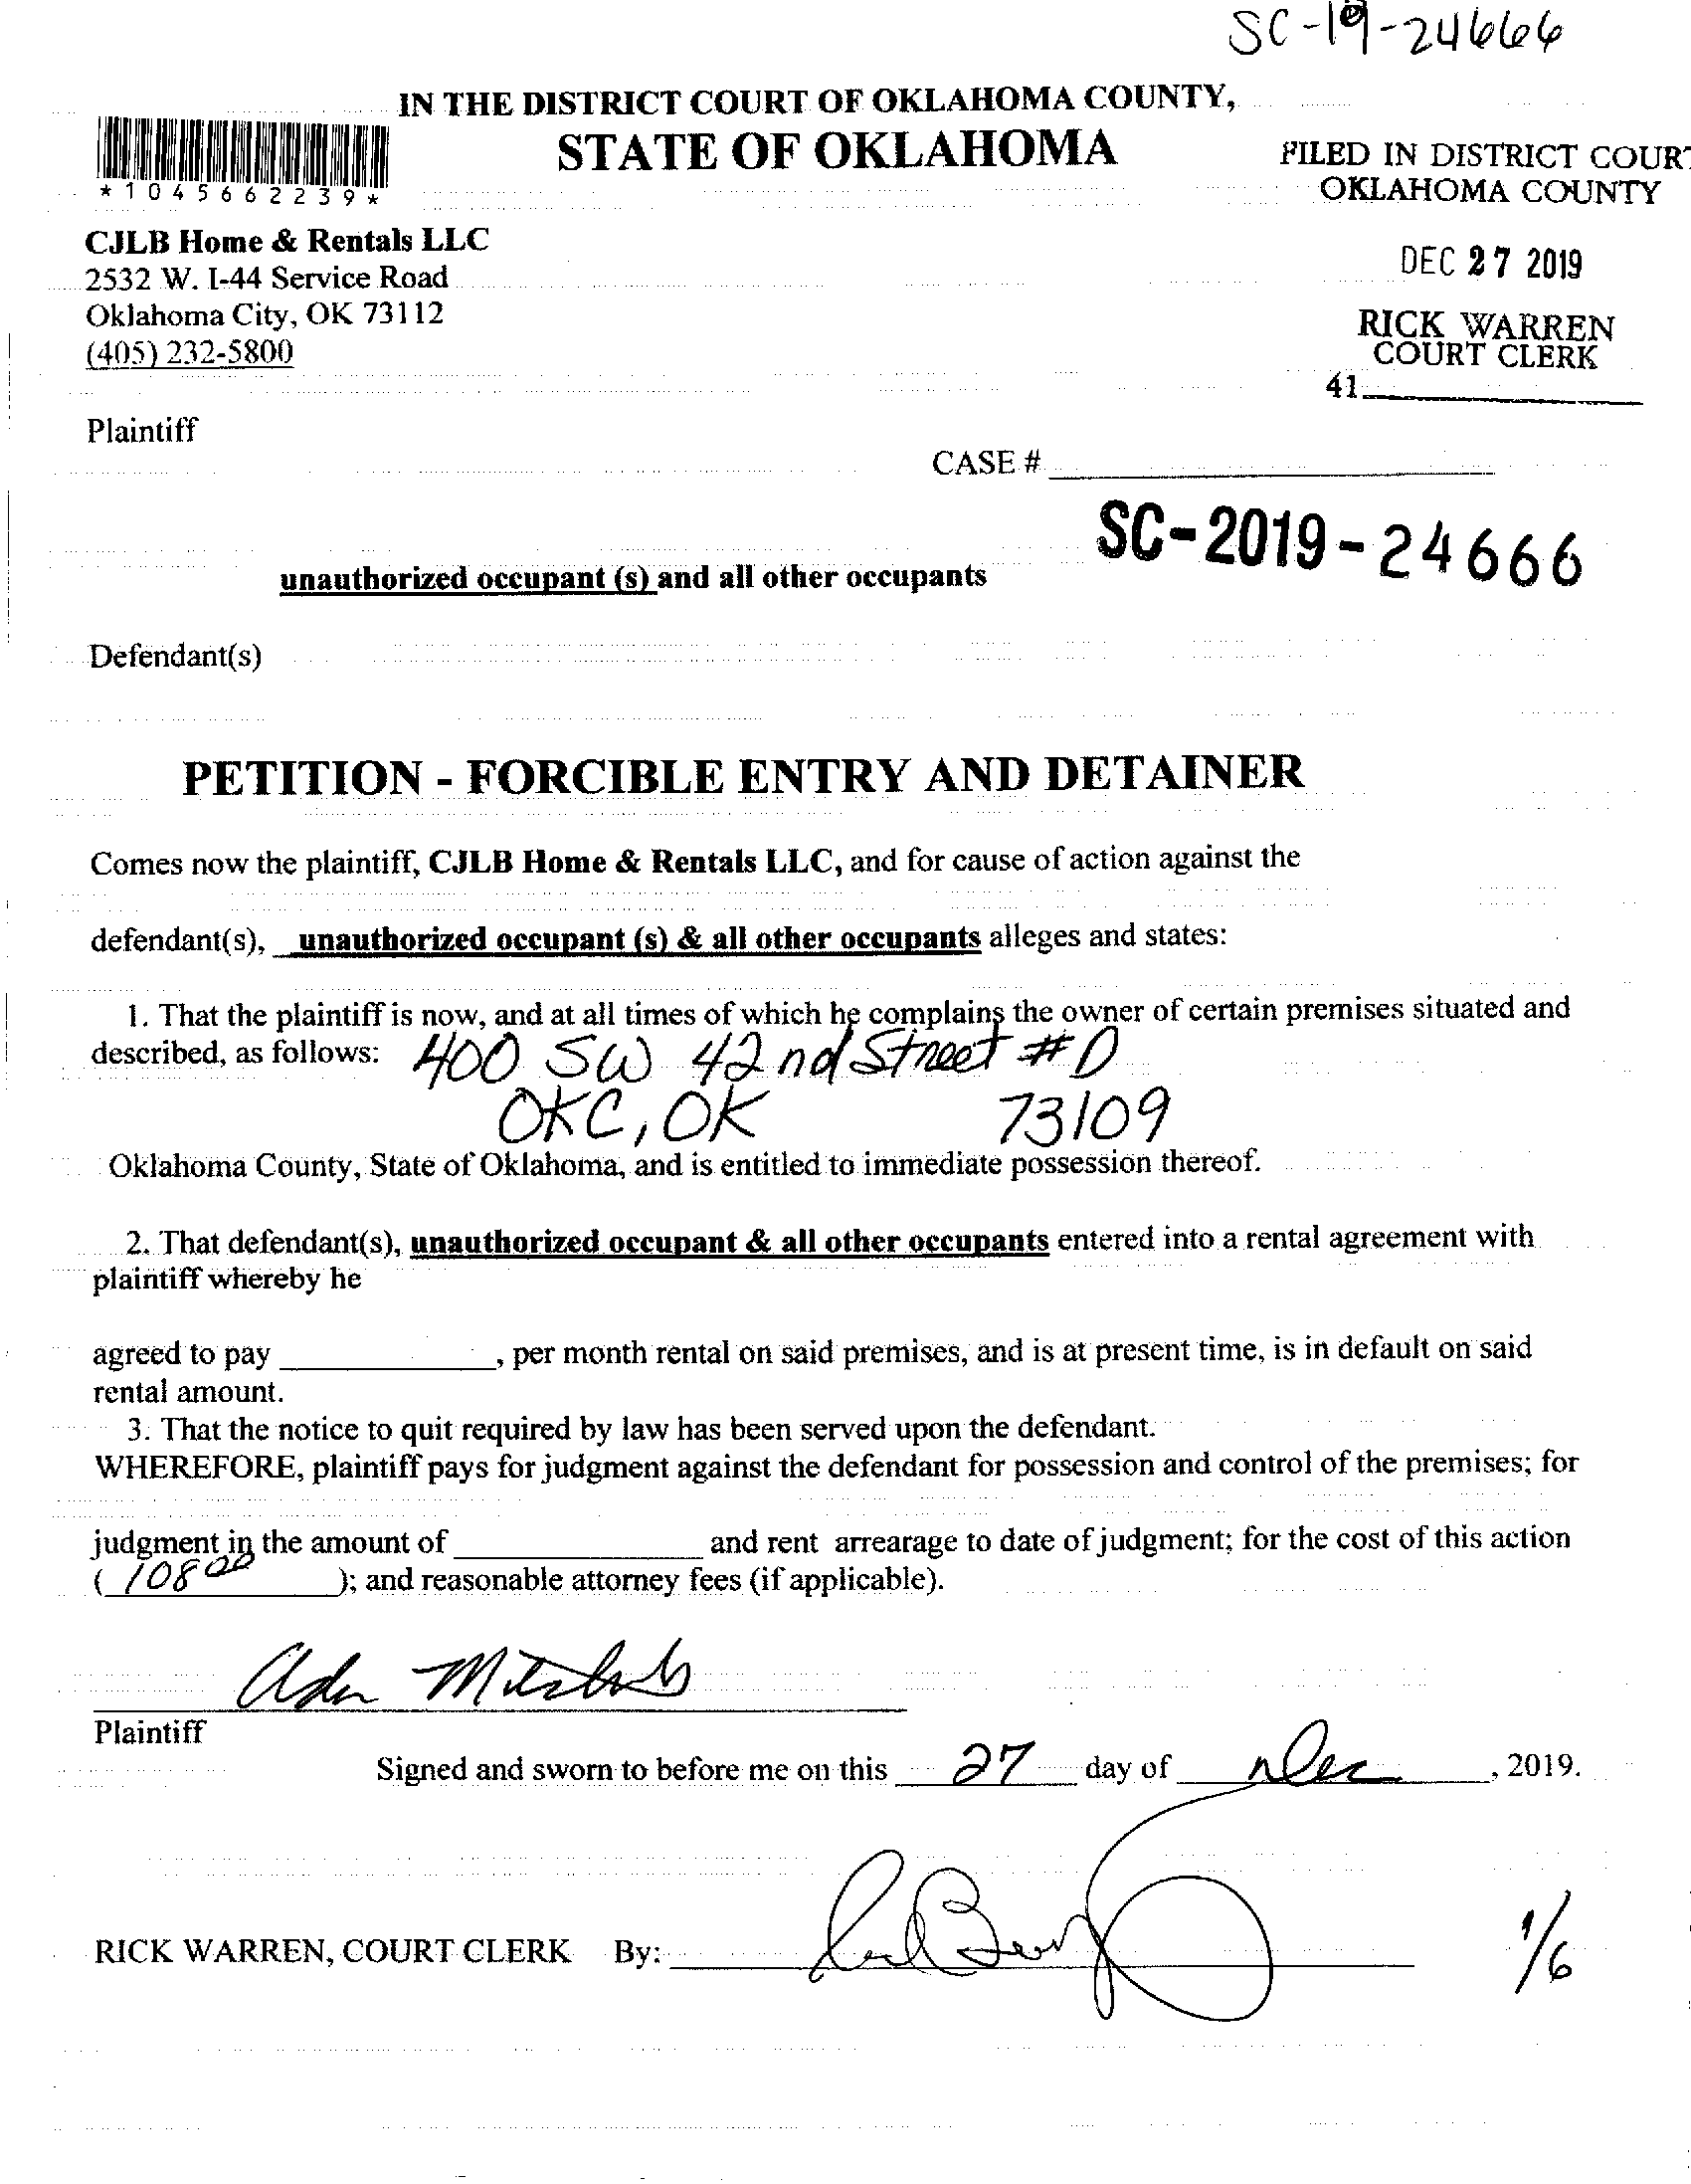 SC-19-24666
IN THE DISTRICT COURT OF OKLAHOMA COUNTY,
STATE OF OKLAHOMA
*1045662239*
FILED IN DISTRICT COURT
OKLAHOMA COUNTY
CJLB Home & Rentals LLC
2532 W. I-44 Service Road
Oklahoma City, OK 73112
(405) 232-5800
DEC 27 2019
RICK WARREN
COURT CLERK
41
Plaintiff
CASE #
SC-2019-24666
unauthorized occupant (s) and all other occupants
Defendant(s)
PETITION - FORCIBLE ENTRY AND DETAINER
Comes now the plaintiff, CJLB Home & Rentals LLC, and for cause of action against the
defendant(s), unauthorized occupant (s) & all other occupants alleges and states:
1. That the plaintiff is now, and at all times of which he complains the owner of certain premises situated and
described, as follows: 400 SW 42nd Street #D
OKC, OK 73109
Oklahoma County, State of Oklahoma, and is entitled to immediate possession thereof.
2. That defendant(s), unauthorized occupant & all other occupants entered into a rental agreement with
plaintiff whereby he
agreed to pay ____________, per month rental on said premises, and is at present time, is in default on said
rental amount.
3. That the notice to quit required by law has been served upon the defendant.
WHEREFORE, plaintiff pays for judgment against the defendant for possession and control of the premises; for
judgment in the amount of ____________ and rent arrearage to date of judgment; for the cost of this action
( 108 00 ); and reasonable attorney fees (if applicable).
Plaintiff
Signed and sworn to before me on this 27 day of Dec, 2019.
RICK WARREN, COURT CLERK By:
1/6